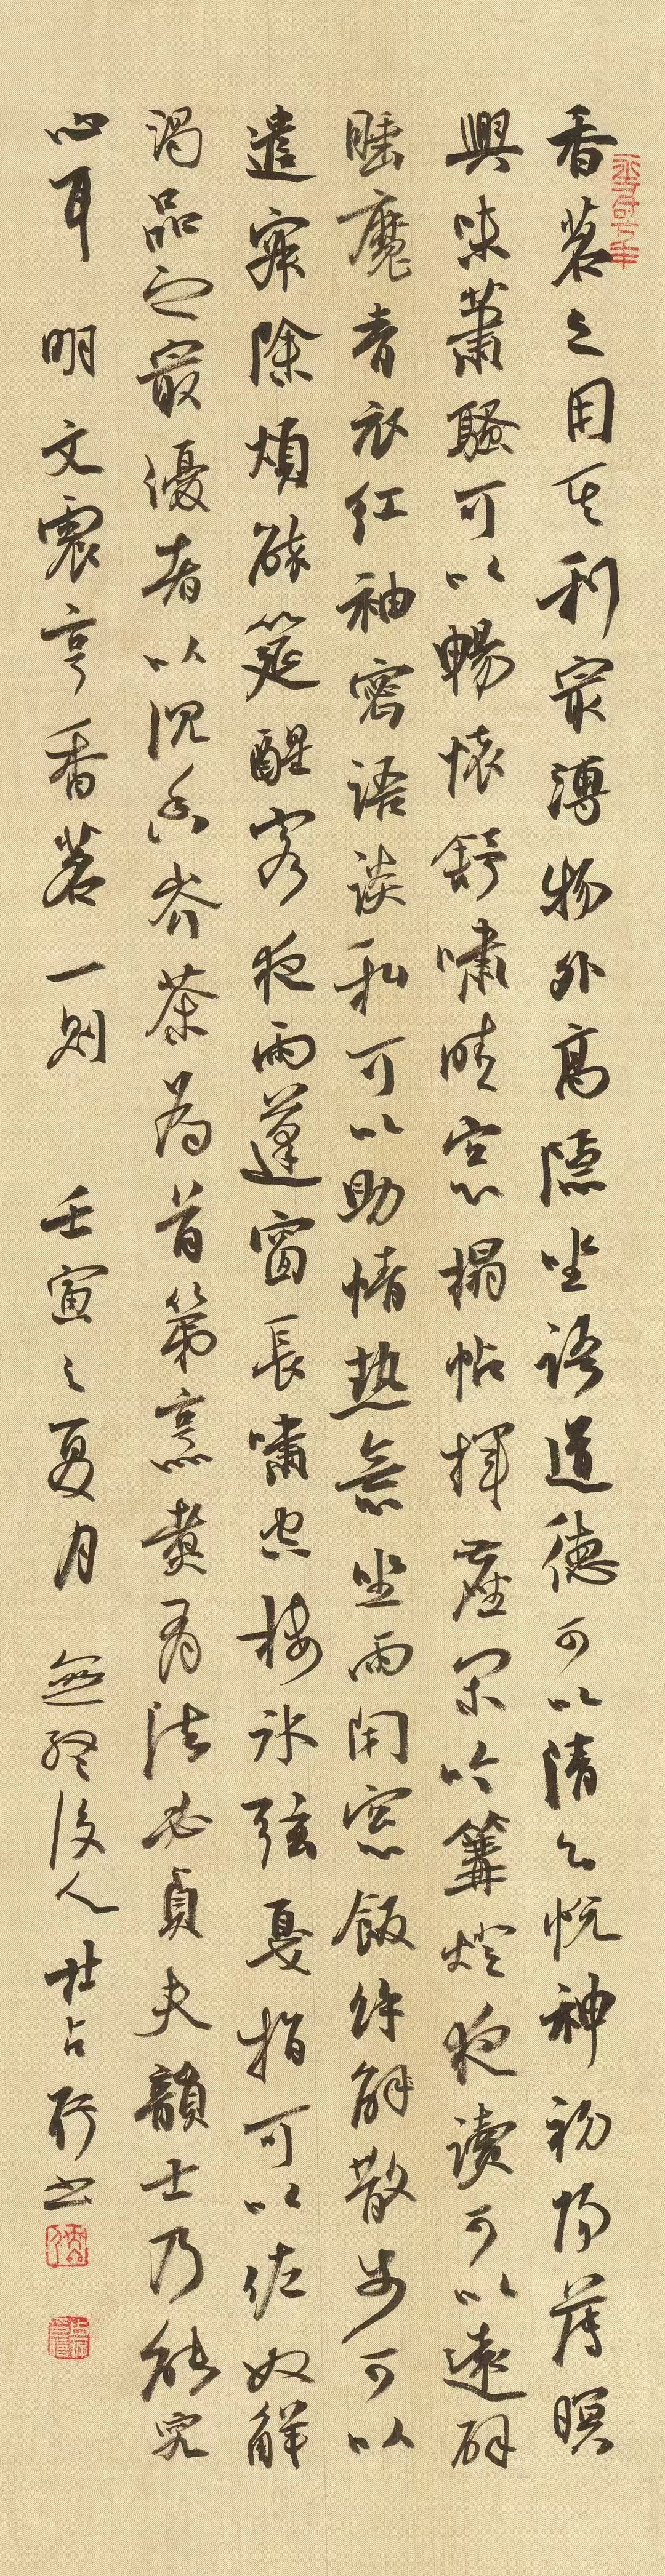 香茗之用其利最溥物外高隱坐語道德可以清心悅神初陽薄暝
興味蕭騷可以暢懷舒嘯晴窓搨帖揮麈閑吟篝燈夜讀可以遠辟
睡魔青衣紅袖密語談私可以助情熱意坐雨閉窓飯餘解散步可以
遣寂除煩醉筵醒客夜雨蓬窗長嘯空樓冰弦戛指可以佐歡解
渴品之最優者以沉香岕茶為首第烹煮有法必貞夫韻士乃能究
心耳 明文震亨香茗一則 壬寅之夏月 無終後人杜占行書